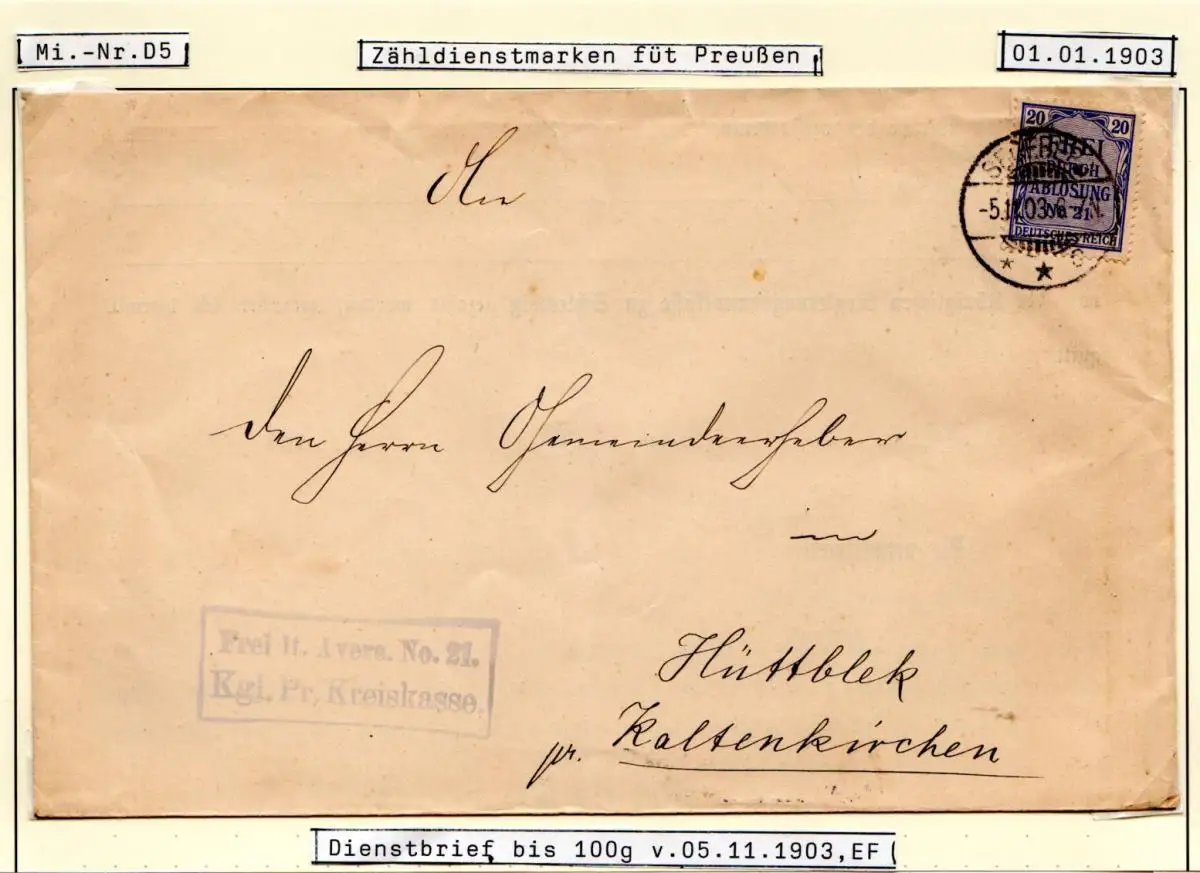 Mi.-Nr.D5
Zähldienstmarken füt Preußen
01.01.1903
20 20
FREI
DURCH
ABLÖSUNG
No 21
DEUTSCHES REICH
-5.11.03.6-7N.
An
den Herrn Gemeindeerheber
in
Hüttblek
pr. Kaltenkirchen
Frei lt. Avers. No. 21.
Kgl. Pr. Kreiskasse.
Dienstbrief bis 100g v.05.11.1903,EF